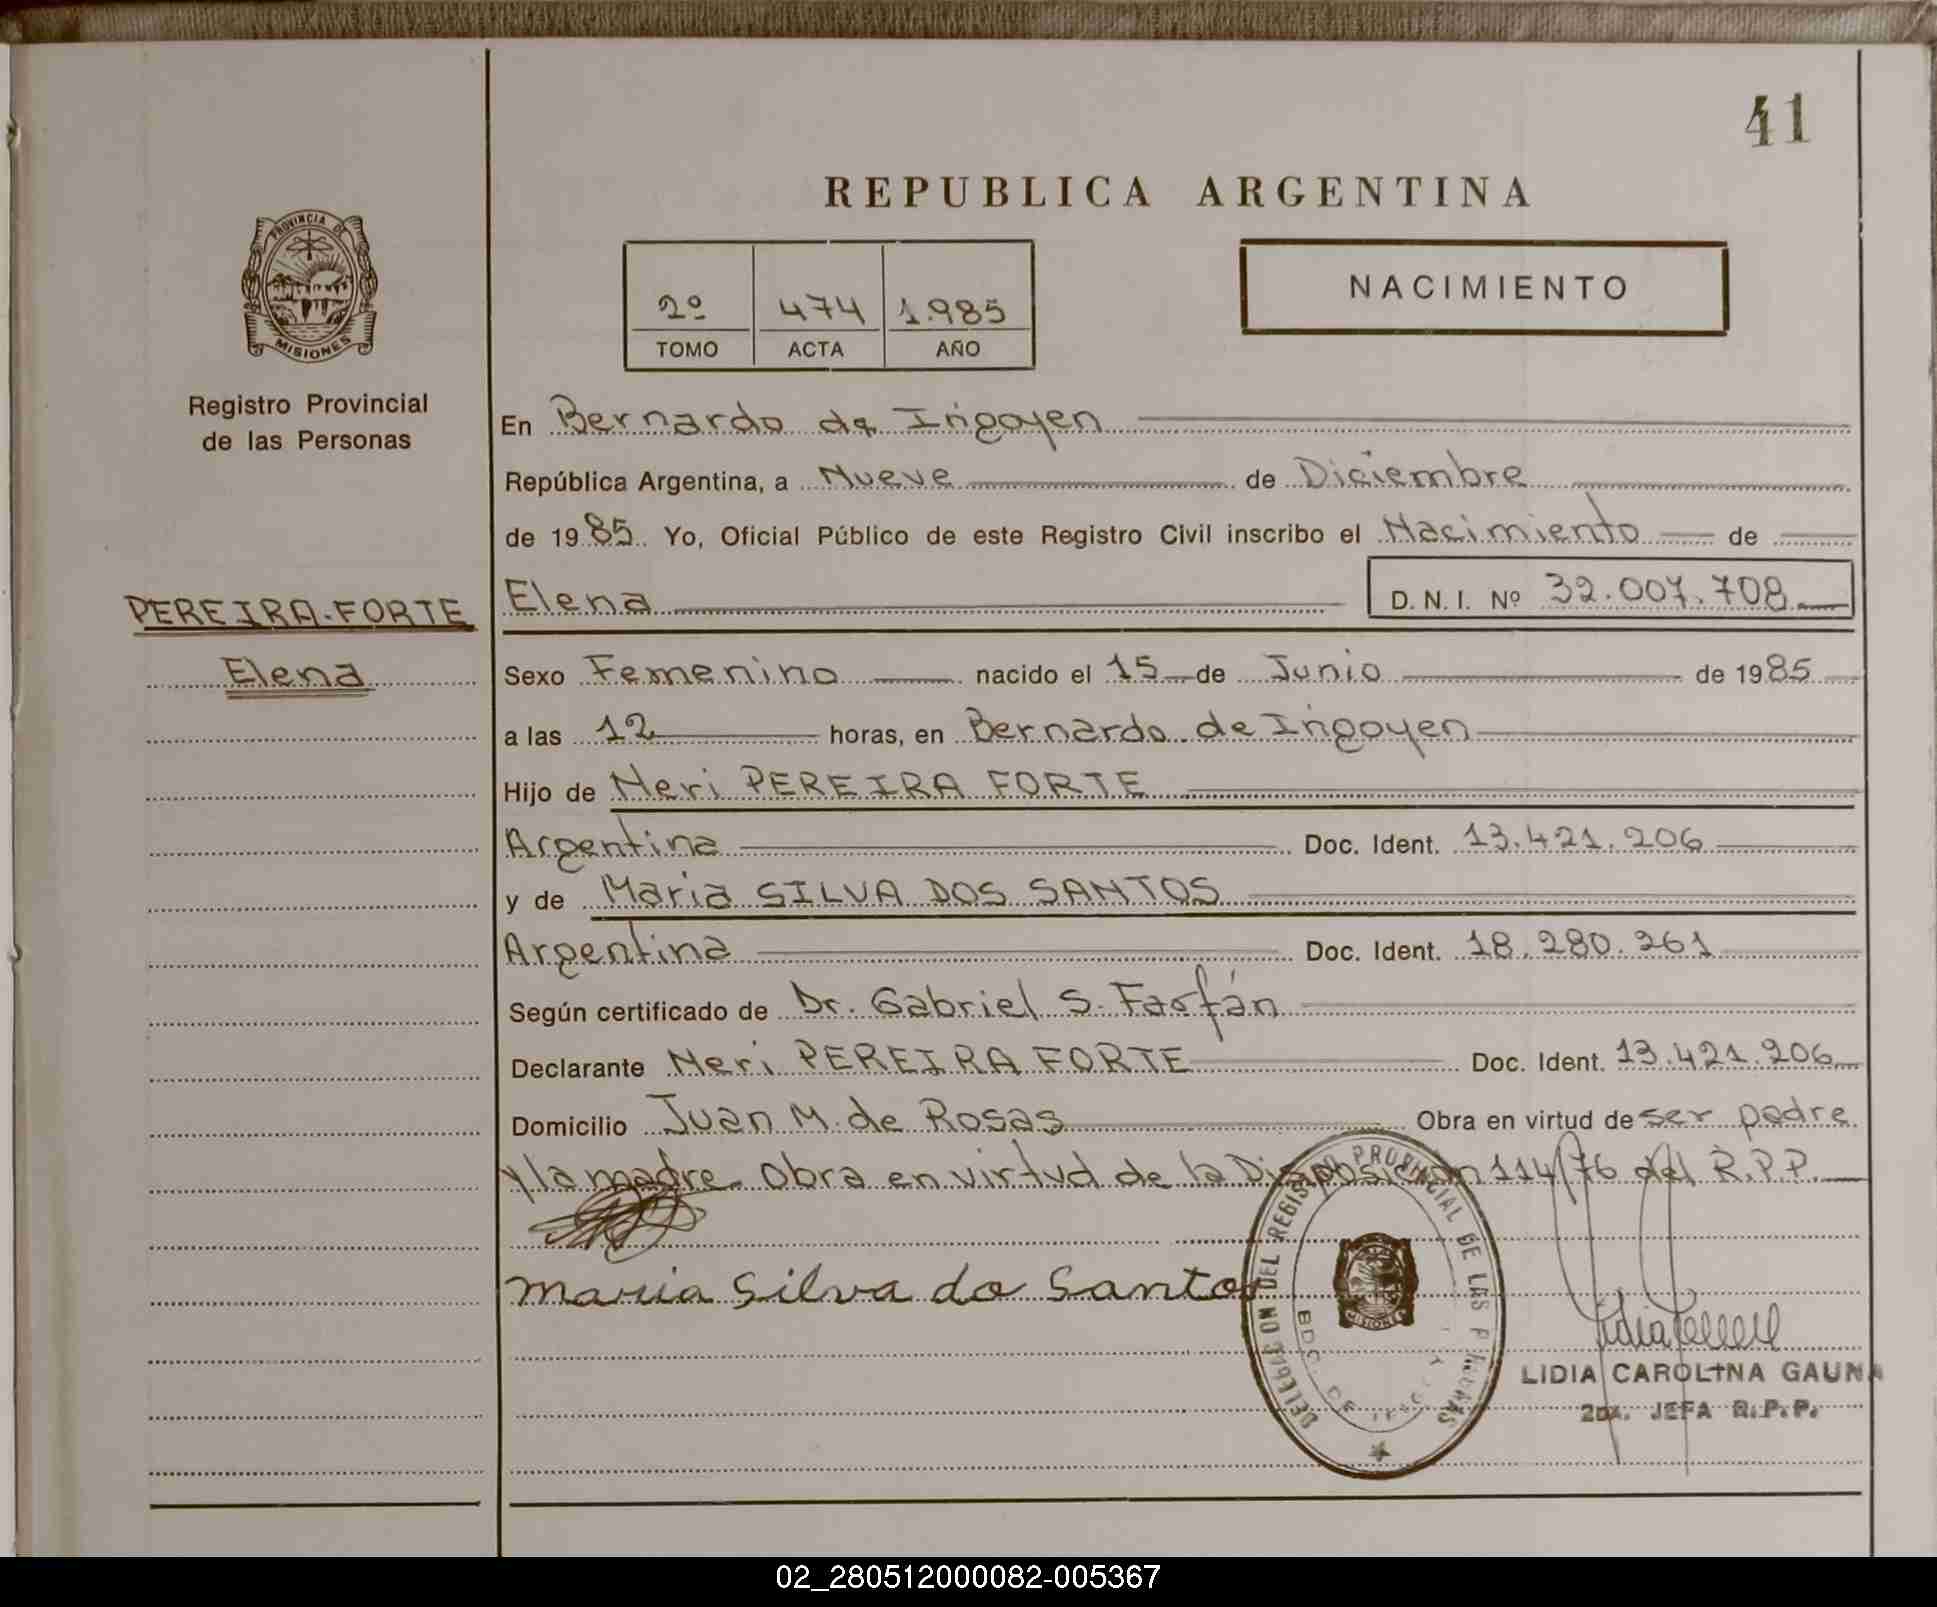 41
REPUBLICA ARGENTINA
PROVINCIA DE
MISIONES
2º 474 1.985
TOMO ACTA AÑO
NACIMIENTO
Registro Provincial
de las Personas
En Bernardo de Irigoyen
República Argentina, a Nueve de Diciembre
de 1985 Yo, Oficial Público de este Registro Civil inscribo el Nacimiento de
PEREIRA-FORTE
Elena
Elena D. N. I. Nº 32.007.708
Sexo Femenino nacido el 15 de Junio de 1985
a las 12 horas, en Bernardo de Irigoyen
Hijo de Neri PEREIRA FORTE
Argentina Doc. Ident. 13.421.206
y de Maria SILVA DOS SANTOS
Argentina Doc. Ident. 18.280.261
Según certificado de Dr. Gabriel S. Farfán
Declarante Neri PEREIRA FORTE Doc. Ident. 13.421.206
Domicilio Juan M. de Rosas Obra en virtud de ser padre
y la madre obra en virtud de la Disposición 114/76 del R.P.P.
maria Silva do Santos
DELEGACION DEL REGISTRO PROVINCIAL DE LAS PERSONAS
BDO. DE
MISIONES
LIDIA CAROLINA GAUNA
2da. JEFA R.P.P.
02_280512000082-005367